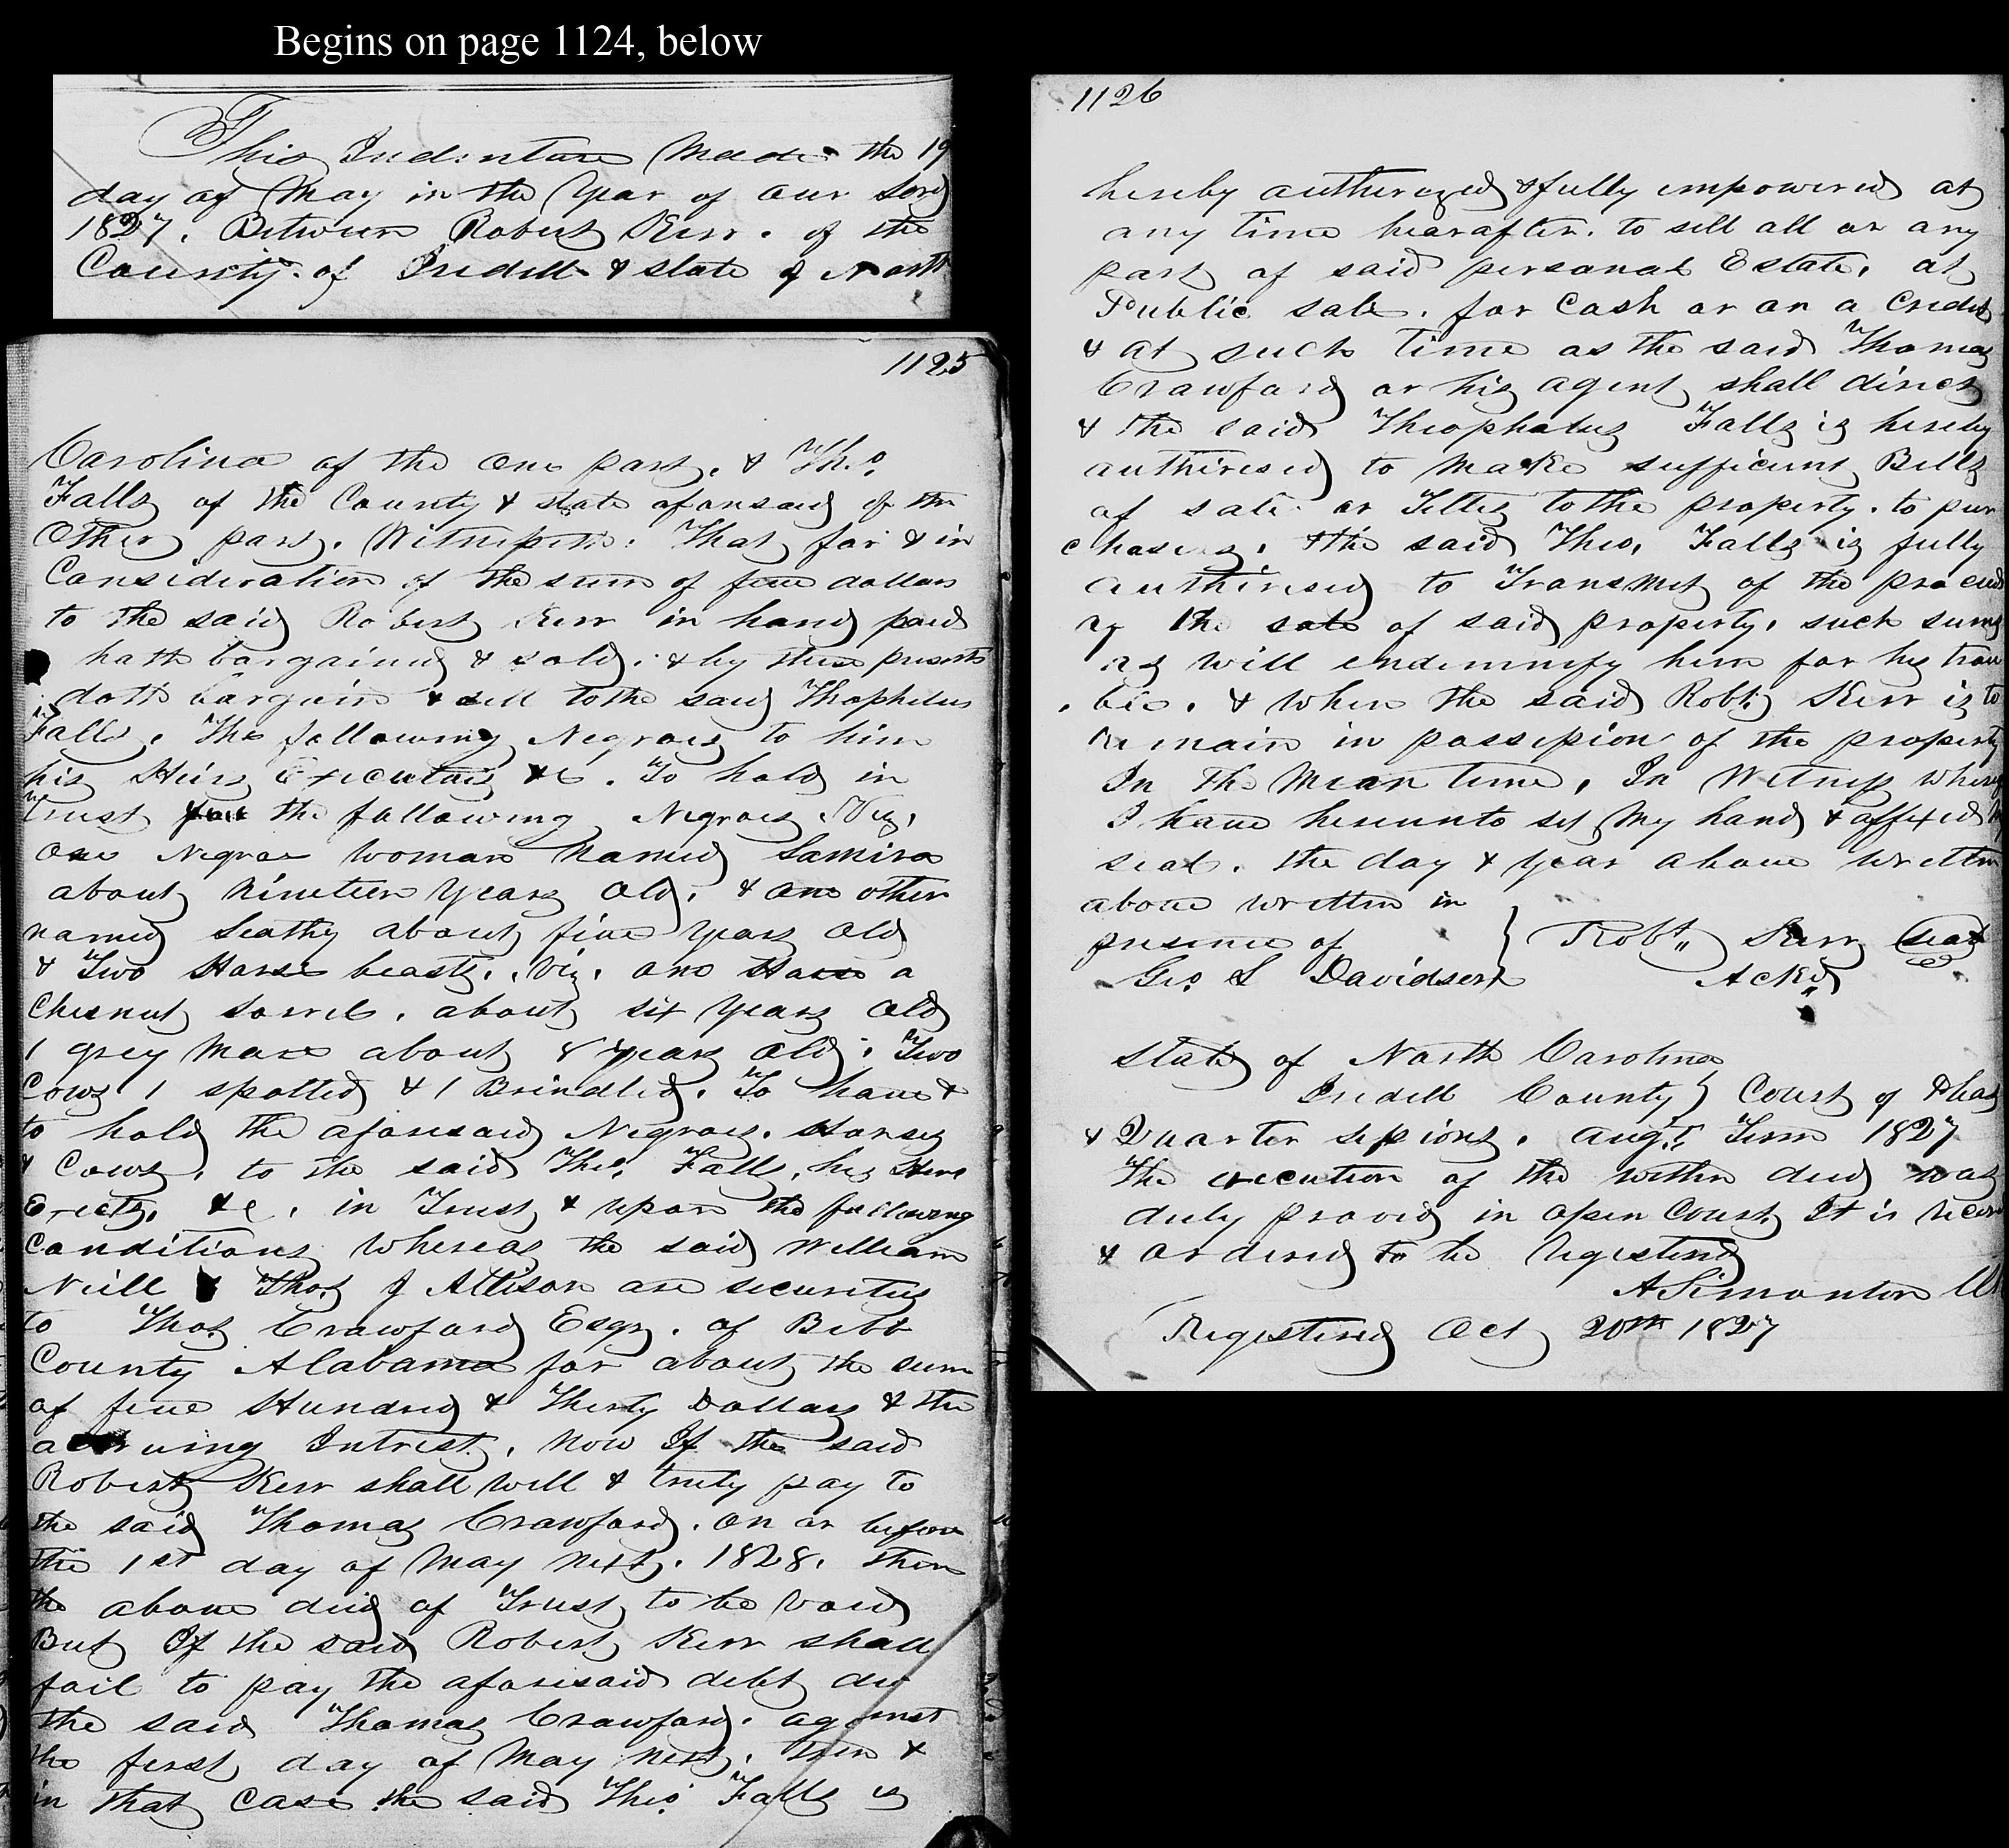 Begins on page 1124, below
This Indenture Made the 19
day of May in the Year of our Lord
1827. Between Robert Kerr. of the
County. of Iredell & state of North
1125
Carolina of the one part. & Theo.
Falls of the County & state aforesaid of the
Other part. Witnesseth: That for & in
Consideration of the sum of five dollars
to the said Robert Kerr in hand paid
hath bargained & sold. & by these presents
doth bargain & sell to the said Thophilus
Falls. The following Negroes to him
his Heirs Executors &c. To hold in
Trust the following Negroes. Viz.
one Negroe woman Named Samira
about Nineteen Years Old. & one other
named Seathy about five Years Old
& Two Horse beasts. Viz. one Horse a
Chesnut sorrel. about six Years Old
1 grey Mare about 8 years Old. Two
Cows 1 spotted & 1 Brindled. To have &
to hold the aforesaid Negroes. Horses
& Cows. to the said Theo. Falls. his Heirs
Exects. &c. in Trust & upon the following
Conditions Whereas the said William
Neill & Thos. J Allison are securities
to Thos. Crawford Esqr. of Bibb
County Alabama for about the sum
of five Hundred & Thirty Dollars & the
accruing Intrest. Now If the said
Robert Kerr shall Well & truly pay to
the said Thomas Crawford. on or before
the 1st day of May next. 1828. then
the above deed of Trust to be Void
But If the said Robert Kerr shall
fail to pay the aforesaid debt due
the said Thomas Crawford. against
the first day of May next. then &
in that case the said Theo. Falls is
1126
hereby autherized & fully empowered at
any time hearafter. to sell all or any
part of said personal Estate. at
Public sale. for Cash or on a Credit
& at such time as the said Thomas
Crawford or his agent shall direct
& the said Theophalus Falls is hereby
authirised to make sufficent Bills
of sale or Titles to the property. to pur
chasers. & the said Theo. Falls is fully
authirised to Transmet of the proceeds
of the sale of said property. such sums
as will endemnify him for his trou
ble. & When the said Robt. Kerr is to
remain in possession of the property
In The Mean time. In Witness whereof
I have hereunto set My hand & affixed my
seal. the day & year above written
above written in
presence of } Robt. Kerr (seal)
Geo. L Davidson } Ackd.
State of North Carolina
Iredell County } Court of Pleas
& Quarter sessions. Augt. Term 1827
The execution of the within deed was
duly proved in open Court It is record
& ordered to be Registered
A Simonton
Registered Oct 20th 1827